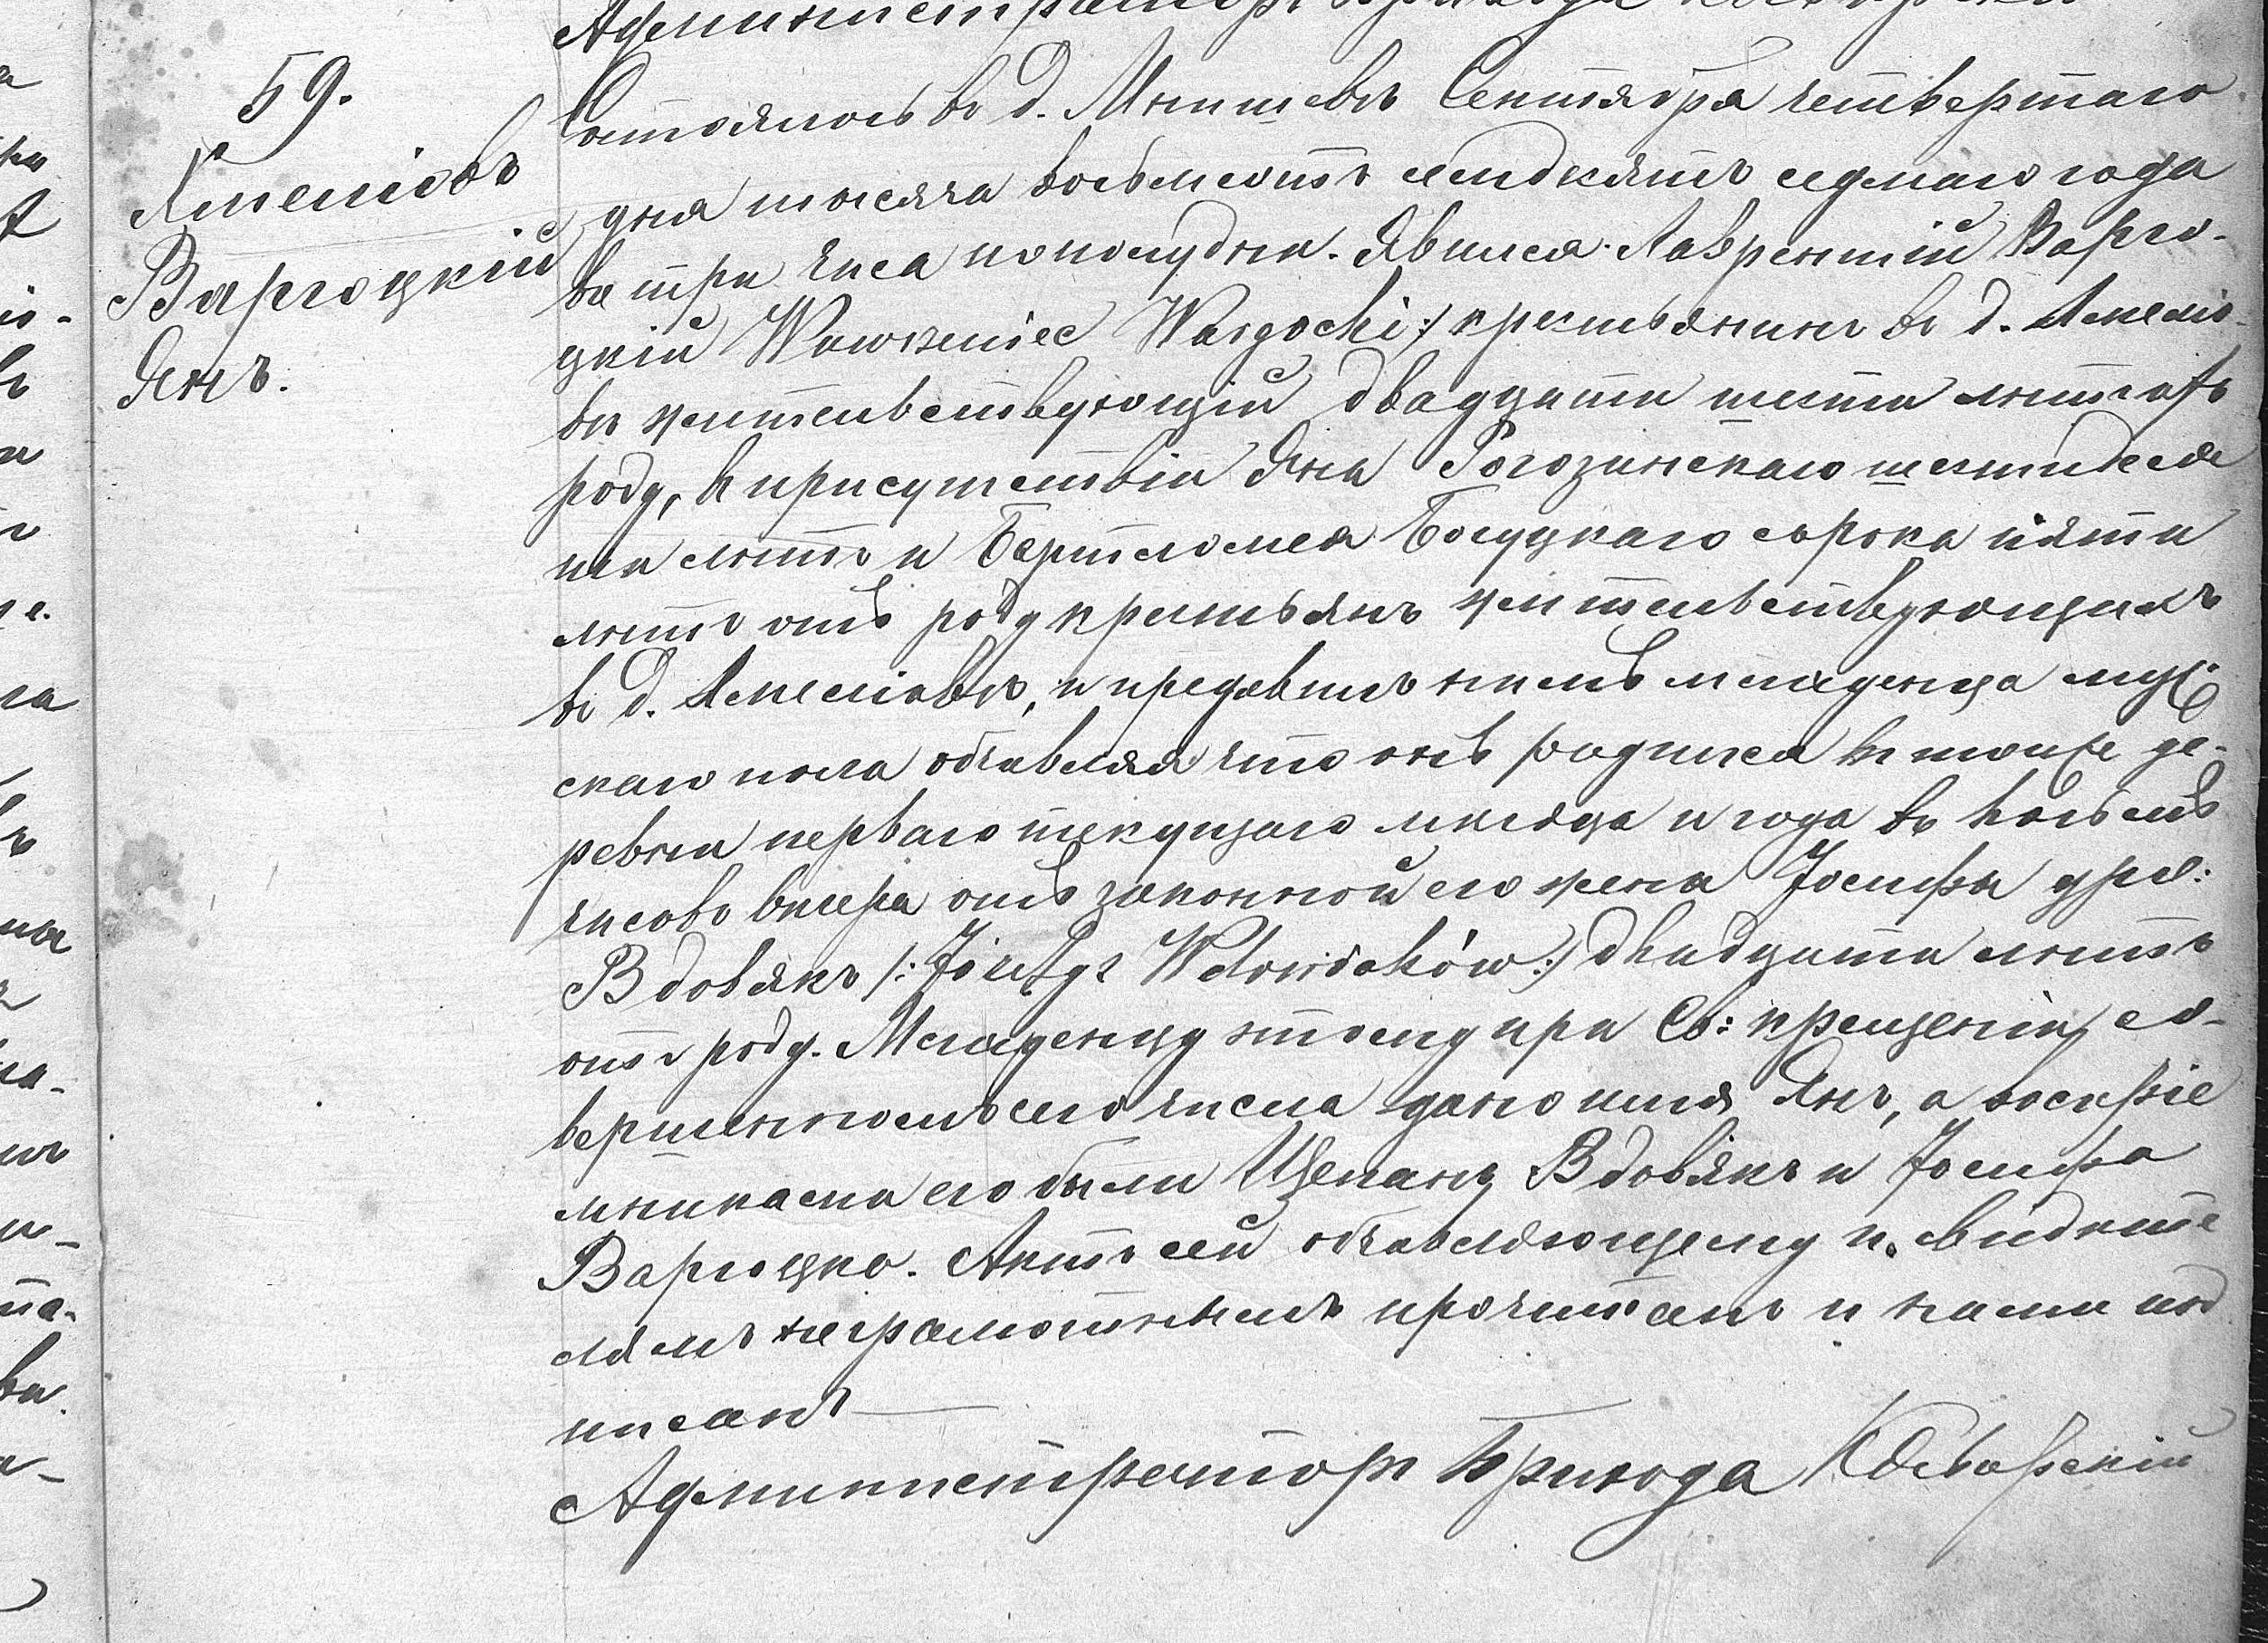 Администраторъ Прихода
59.
Ямеліовъ
Варгоцкій
Янъ.
Состоялось въ д. Мнишевѣ Сентября четвертаго
дня тысяча восьмсотъ семдесятъ седмаго года
въ три часа пополудни. Явился Лаврентій Варго-
цкій Wawrzeniec Wargocki:/ крестьянинъ въ д. Амеліо-
вѣ жительствующій двадцати шести лѣтъ отъ
роду, въ присутствіи Яна Рогозинскаго шестидеся
ти лѣтъ и Бартломея сорока пяти
лѣтъ отъ роду крестьянъ жительствующихъ
въ д. Амеліовѣ, и предъявилъ намъ младенца муж-
скаго пола объявляя что онъ родился въ тойже де-
ревни перваго текущаго мѣсяца и года въ восемь
часовъ вечера отъ законной его жены Іосифы урж:
Вдовякъ /: Józefy z Wdowiaków:/ двадцати лѣтъ
отъ роду. Младенцу этому при Св: крещеніи со-
вершенномъ сего числа дано имя Янъ, а воспріе
мниками его были Щепанъ Вдовякъ и Іосифа
Варгоцка. Актъ сей объявляющему и свидѣте
лямъ неграмотнымъ прочитанъ и нами под
писанъ
Администраторъ Прихода